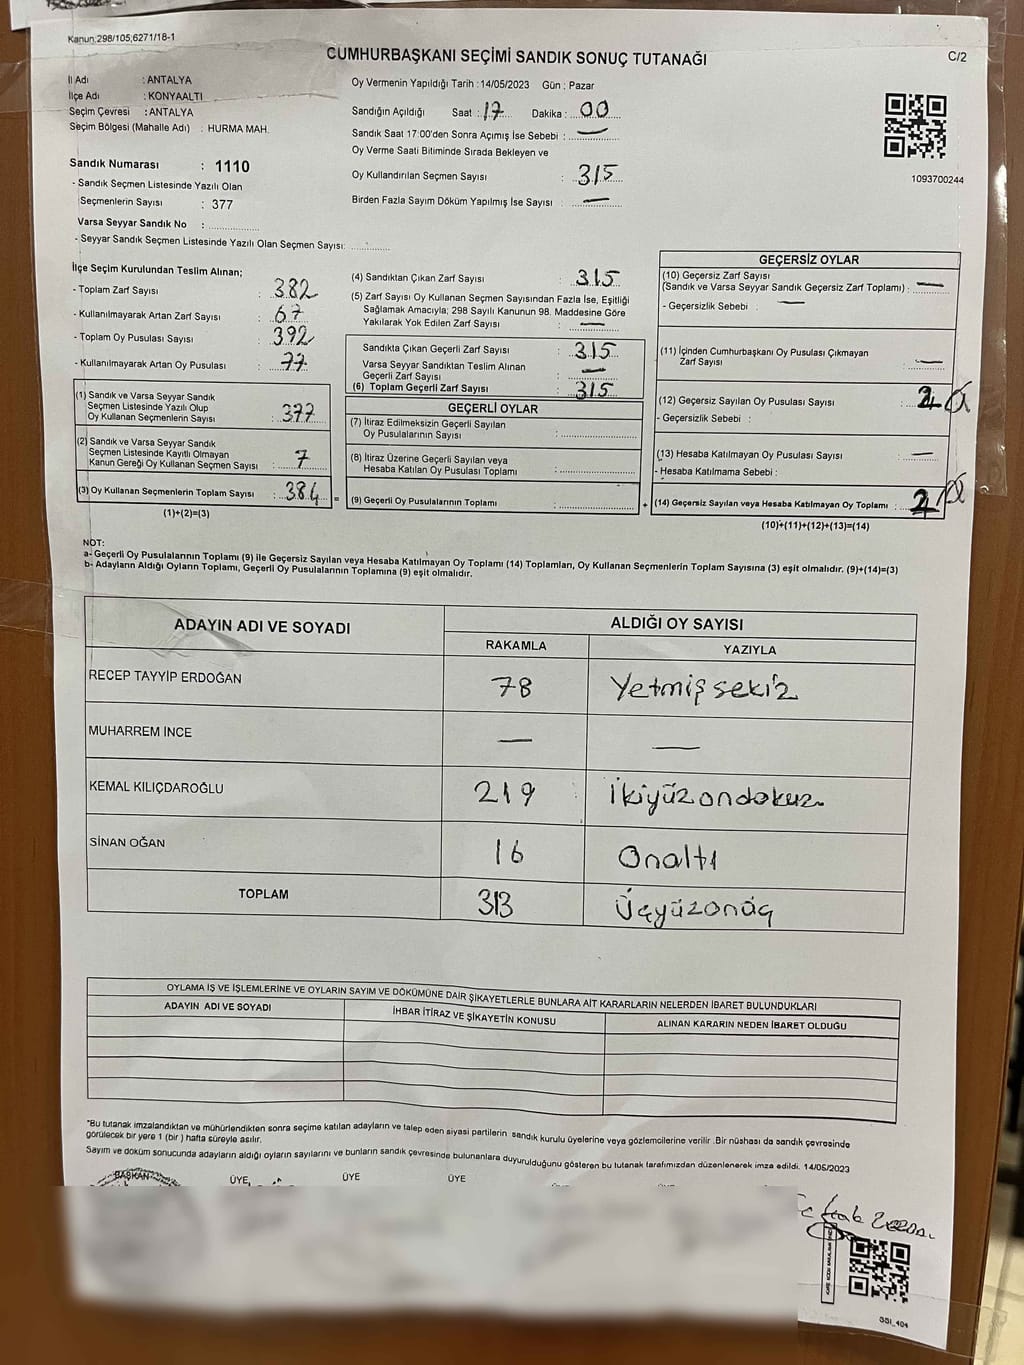 Kanun:298/105,6271/18-1
CUMHURBAŞKANI SEÇİMİ SANDIK SONUÇ TUTANAĞI
C/2
İl Adı : ANTALYA
İlçe Adı : KONYAALTI
Seçim Çevresi : ANTALYA
Seçim Bölgesi (Mahalle Adı) : HURMA MAH.
Sandık Numarası : 1110
- Sandık Seçmen Listesinde Yazılı Olan
Seçmenlerin Sayısı : 377
Varsa Seyyar Sandık No :
- Seyyar Sandık Seçmen Listesinde Yazılı Olan Seçmen Sayısı:
Oy Vermenin Yapıldığı Tarih :14/05/2023 Gün : Pazar
Sandığın Açıldığı Saat : 17 Dakika : 00
Sandık Saat 17:00'den Sonra Açımış İse Sebebi : —
Oy Verme Saati Bitiminde Sırada Bekleyen ve
Oy Kullandırılan Seçmen Sayısı : 315
Birden Fazla Sayım Döküm Yapılmış İse Sayısı : —
1093700244
İlçe Seçim Kurulundan Teslim Alınan;
- Toplam Zarf Sayısı : 382
- Kullanılmayarak Artan Zarf Sayısı : 67
- Toplam Oy Pusulası Sayısı : 392
- Kullanılmayarak Artan Oy Pusulası : 77
(1) Sandık ve Varsa Seyyar Sandık
Seçmen Listesinde Yazılı Olup
Oy Kullanan Seçmenlerin Sayısı : 377
(2) Sandık ve Varsa Seyyar Sandık
Seçmen Listesinde Kayıtlı Olmayan
Kanun Gereği Oy Kullanan Seçmen Sayısı : 7
(3) Oy Kullanan Seçmenlerin Toplam Sayısı : 384 =
(1)+(2)=(3)
(4) Sandıktan Çıkan Zarf Sayısı : 315
(5) Zarf Sayısı Oy Kullanan Seçmen Sayısından Fazla İse, Eşitliği
Sağlamak Amacıyla; 298 Sayılı Kanunun 98. Maddesine Göre
Yakılarak Yok Edilen Zarf Sayısı : —
Sandıkta Çıkan Geçerli Zarf Sayısı : 315
Varsa Seyyar Sandıktan Teslim Alınan
Geçerli Zarf Sayısı : —
(6) Toplam Geçerli Zarf Sayısı : 315
GEÇERLİ OYLAR
(7) İtiraz Edilmeksizin Geçerli Sayılan
Oy Pusulalarının Sayısı :
(8) İtiraz Üzerine Geçerli Sayılan veya
Hesaba Katılan Oy Pusulası Toplamı :
(9) Geçerli Oy Pusulalarının Toplamı : +
GEÇERSİZ OYLAR
(10) Geçersiz Zarf Sayısı
(Sandık ve Varsa Seyyar Sandık Geçersiz Zarf Toplamı) : —
- Geçersizlik Sebebi : —
(11) İçinden Cumhurbaşkanı Oy Pusulası Çıkmayan
Zarf Sayısı : —
(12) Geçersiz Sayılan Oy Pusulası Sayısı : 2
- Geçersizlik Sebebi :
(13) Hesaba Katılmayan Oy Pusulası Sayısı : —
- Hesaba Katılmama Sebebi :
(14) Geçersiz Sayılan veya Hesaba Katılmayan Oy Toplamı : 2
(10)+(11)+(12)+(13)=(14)
NOT:
a- Geçerli Oy Pusulalarının Toplamı (9) ile Geçersiz Sayılan veya Hesaba Katılmayan Oy Toplamı (14) Toplamları, Oy Kullanan Seçmenlerin Toplam Sayısına (3) eşit olmalıdır. (9)+(14)=(3)
b- Adayların Aldığı Oyların Toplamı, Geçerli Oy Pusulalarının Toplamına (9) eşit olmalıdır.
ADAYIN ADI VE SOYADI ALDIĞI OY SAYISI
RAKAMLA YAZIYLA
RECEP TAYYİP ERDOĞAN 78 Yetmiş sekiz
MUHARREM İNCE — —
KEMAL KILIÇDAROĞLU 219 İkiyüz ondokuz
SİNAN OĞAN 16 Onaltı
TOPLAM 313 Üçyüzonüç
OYLAMA İŞ VE İŞLEMLERİNE VE OYLARIN SAYIM VE DÖKÜMÜNE DAİR ŞİKAYETLERLE BUNLARA AİT KARARLARIN NELERDEN İBARET BULUNDUKLARI
ADAYIN ADI VE SOYADI İHBAR İTİRAZ VE ŞİKAYETİN KONUSU ALINAN KARARIN NEDEN İBARET OLDUĞU
*Bu tutanak imzalandıktan ve mühürlendikten sonra seçime katılan adayların ve talep eden siyasi partilerin sandık kurulu üyelerine veya gözlemcilerine verilir .Bir nüshası da sandık çevresinde
görülecek bir yere 1 (bir ) hafta süreyle asılır.
Sayım ve döküm sonucunda adayların aldığı oyların sayılarını ve bunların sandık çevresinde bulunanlara duyurulduğunu gösteren bu tutanak tarafımızdan düzenlenerek imza edildi. 14/05/2023
BAŞKAN ÜYE ÜYE ÜYE